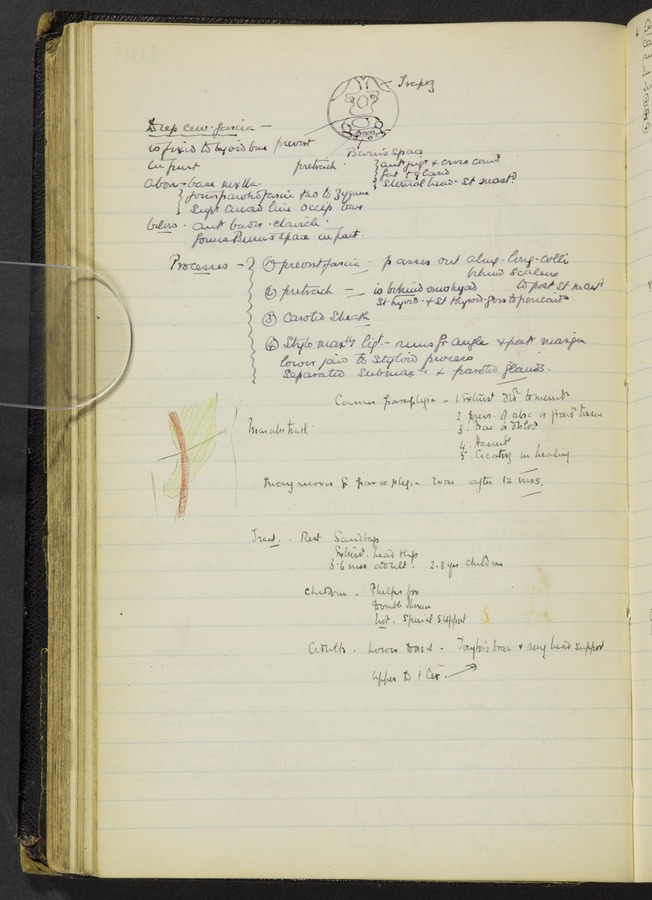 Trapez
Deep cerv. fascia —
is fixed to hyoid bone prevert
in front pretrach. Burns space
ant jug + cross comt
fat + gland
sternal head - St mastd
above - base
forms parotid fascia + to Zygoma
Supr curved line occip bone
below - ant bord. clavicle
forms Burns space in front.
Processes — (1) prevert fascia - passes out along long-colli
behind scalenes
(2) pretrach — is behind omohyoid to post St mastd
St hyoid + St thyroid - goes to pericardm
(3) Carotid Sheath
(4) Stylo maxlly ligt - runs fr angle + post margin
lower jaw to Styloid process
Separates Submaxlly + parotid glands.
Causes paraplegia - 1
2. press. of absc or grant tissue
3.
4. Haemt
5. Cicatriz in healing
Psoas abs track
May recover fr paraplegia even after 12 mos.
Treat. . Rest Sandbags
Extenst. head + hips
3-6 mos adult. 2-3 yrs children
Children - Phelps box
Double Thomas
Spinal support
Adults. Lower Dorsal - Taylor's brace + ring head support
Upper D + Cer.